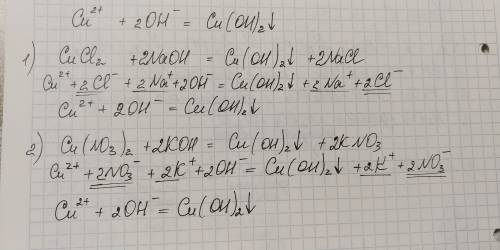 Cu²⁺ + 2OH⁻ = Cu(OH)₂↓
1) CuCl₂ + 2NaOH = Cu(OH)₂↓ + 2NaCl
Cu²⁺ + 2Cl⁻ + 2Na⁺ + 2OH⁻ = Cu(OH)₂↓ + 2Na⁺ + 2Cl⁻
Cu²⁺ + 2OH⁻ = Cu(OH)₂↓
2) Cu(NO₃)₂ + 2KOH = Cu(OH)₂↓ + 2KNO₃
Cu²⁺ + 2NO₃⁻ + 2K⁺ + 2OH⁻ = Cu(OH)₂↓ + 2K⁺ + 2NO₃⁻
Cu²⁺ + 2OH⁻ = Cu(OH)₂↓